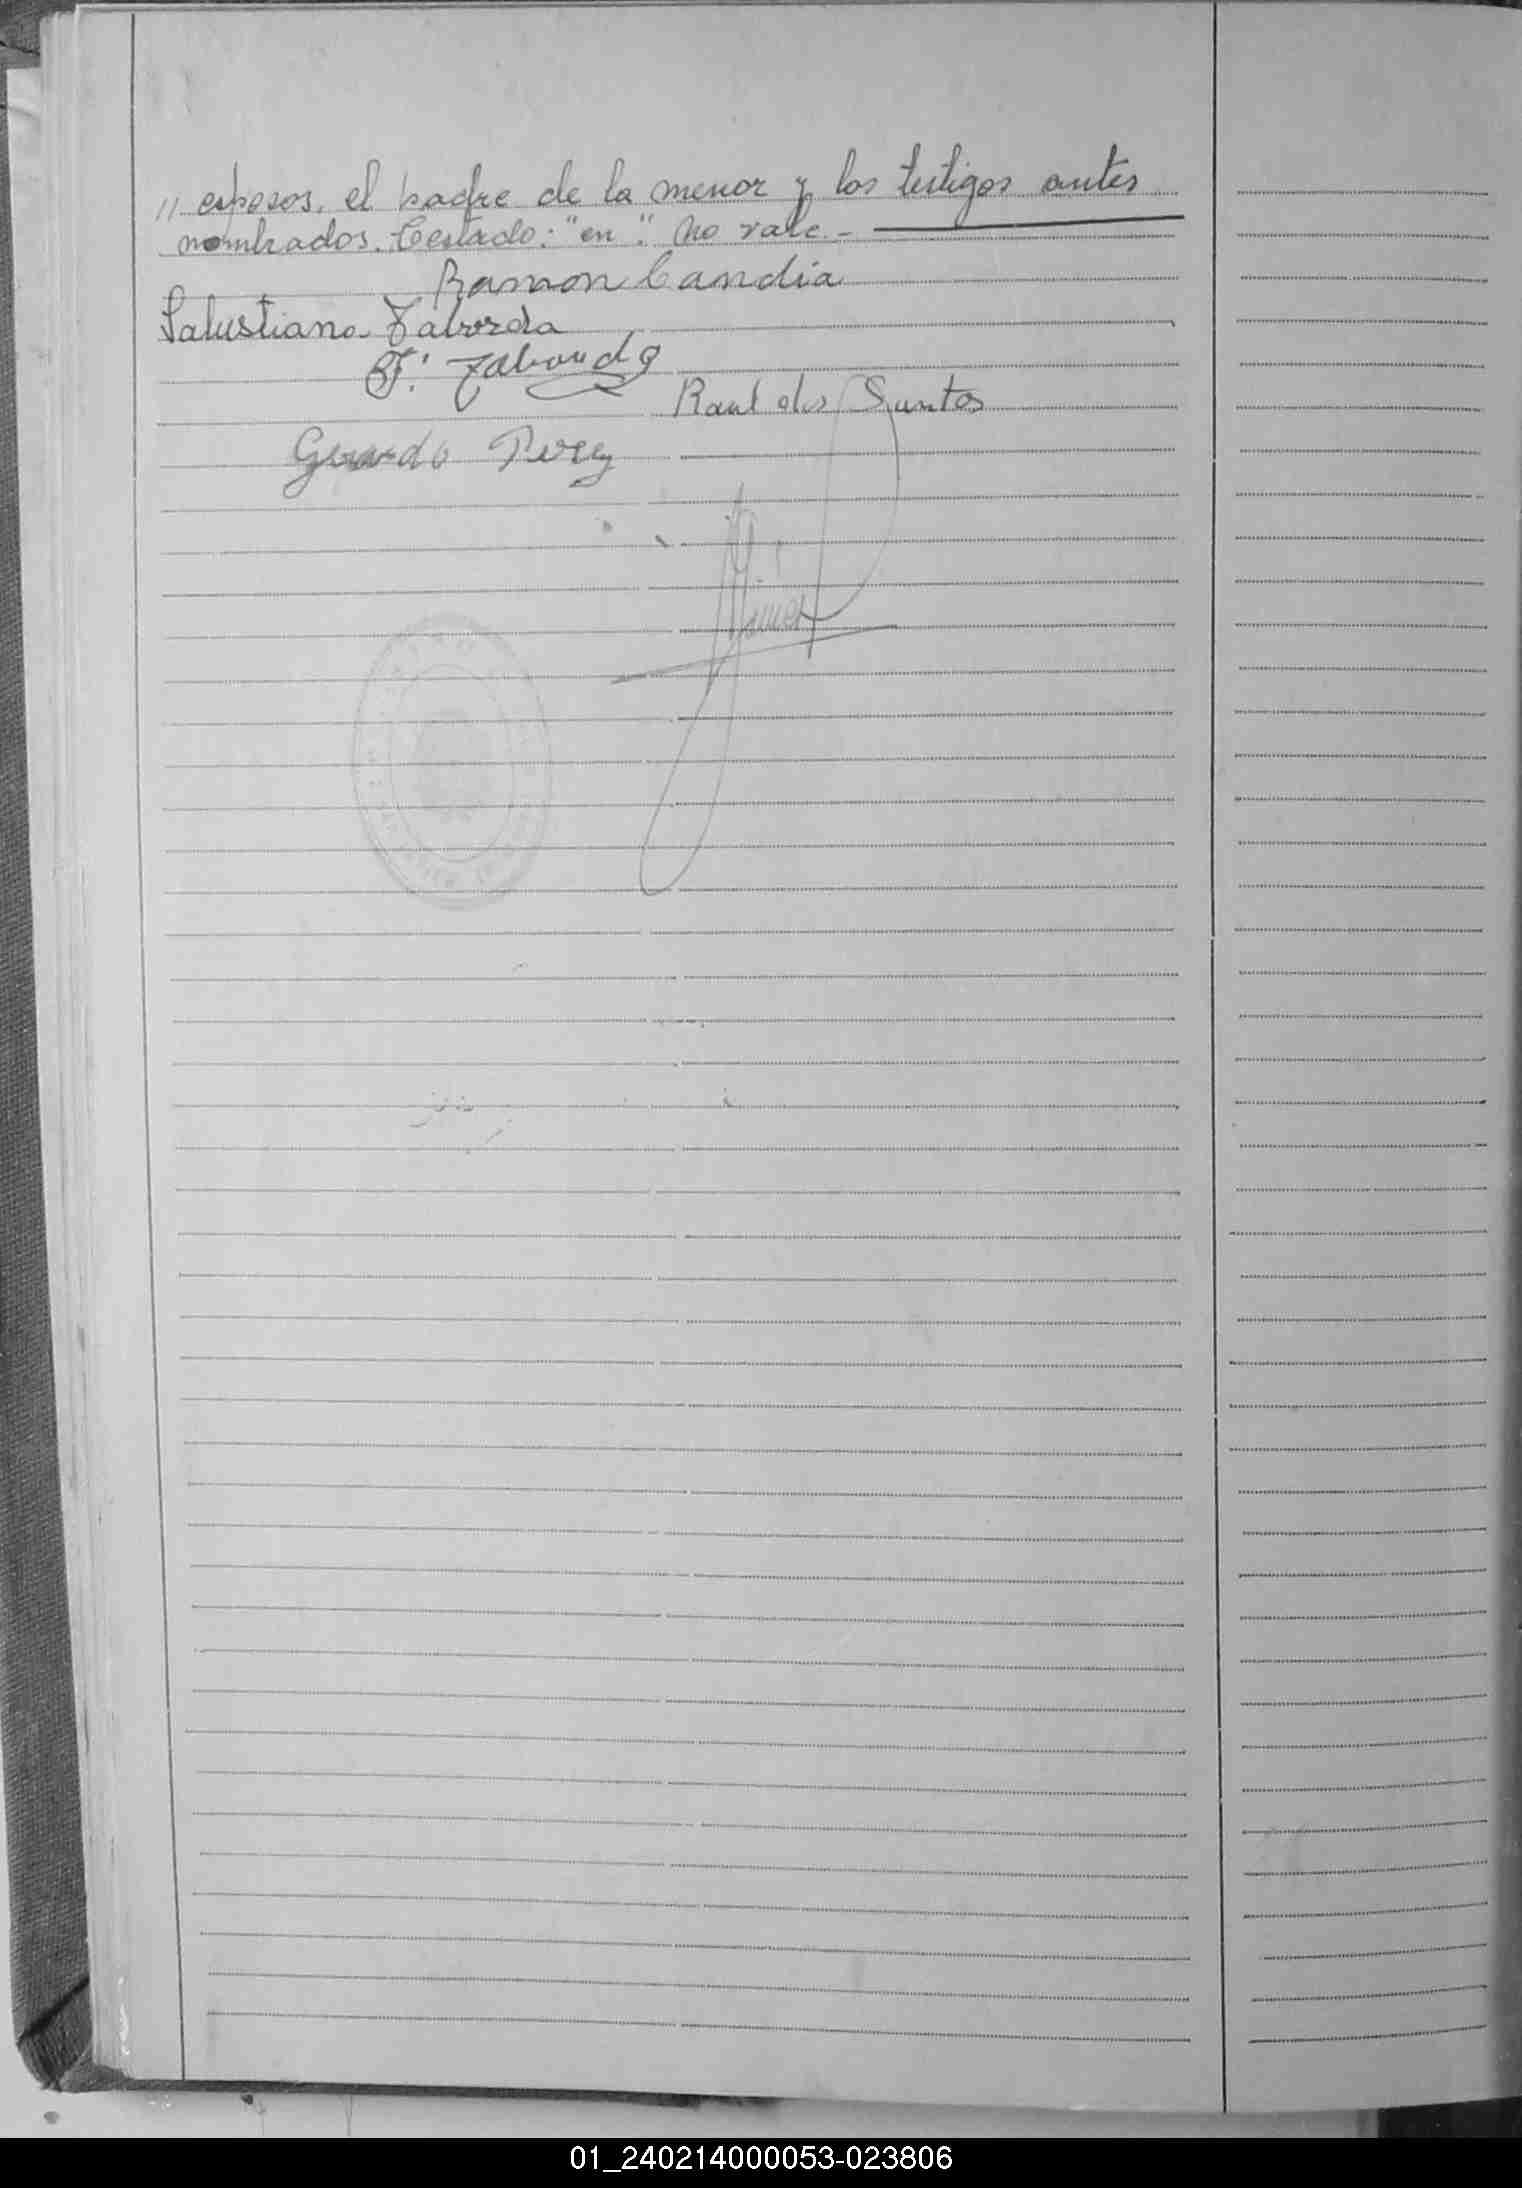 " esposos, el padre de la menor y los testigos antes
nombrados. Testado: "en". No vale.-
Ramon Candia
Salustiana Taborda
F. Taborda
Raul dos Santos
Gerardo Perez
01_240214000053-023806